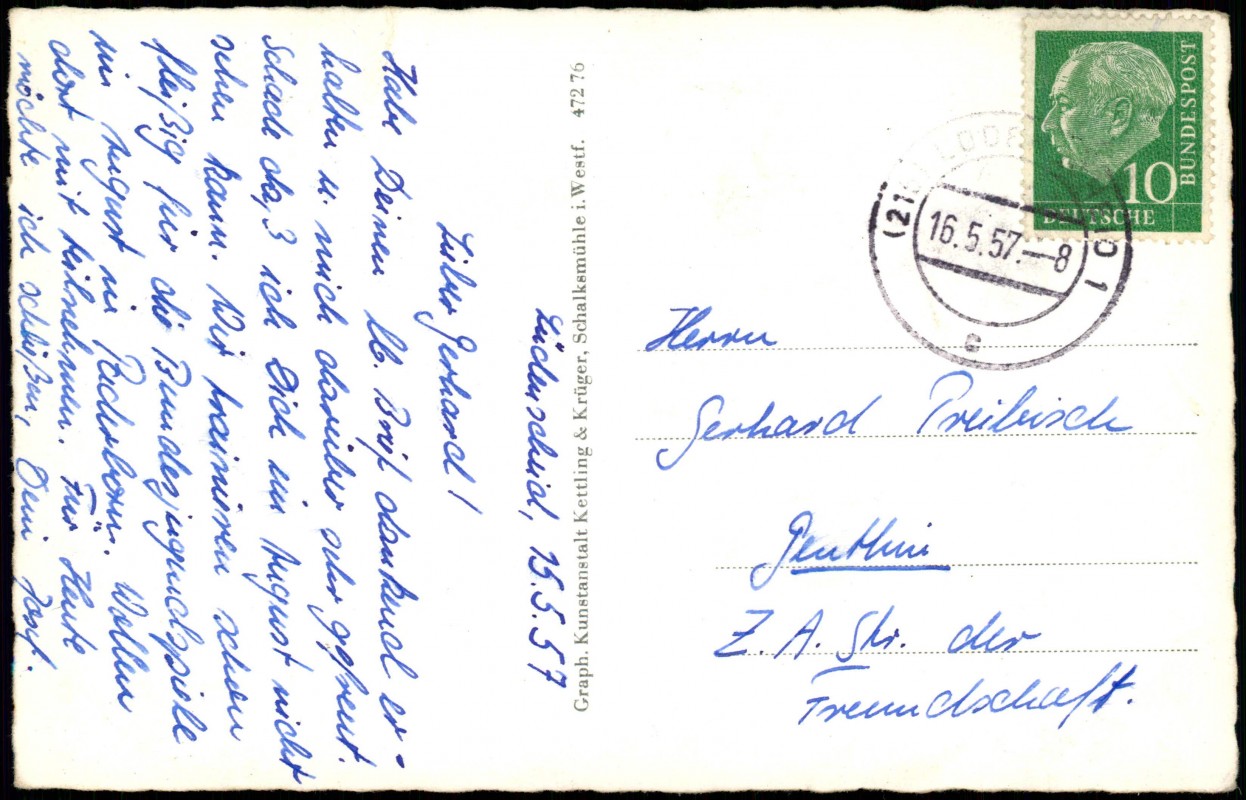 Lüdenscheid, 15.5.57
Lieber Gerhard!
Habe Deinen lb. Brief dankend er-
halten u. mich darüber sehr gefreut.
Schade daß ich Dich im August nicht
sehen kann. Wir trainieren schon
fleißig für die Bundesjugendspiele
im August in Paderborn. Wollen
dort mit teilnehmen. Für Heute
möchte ich schließen, Dein Josef.
Graph. Kunstanstalt Kettling & Krüger, Schalksmühle i. Westf. 472 76
BUNDESPOST
10
DEUTSCHE
(21
16.5.57.–8
c
Herrn
Gerhard Preibisch
Penthin
Z. A. Str. der
Freundschaft.